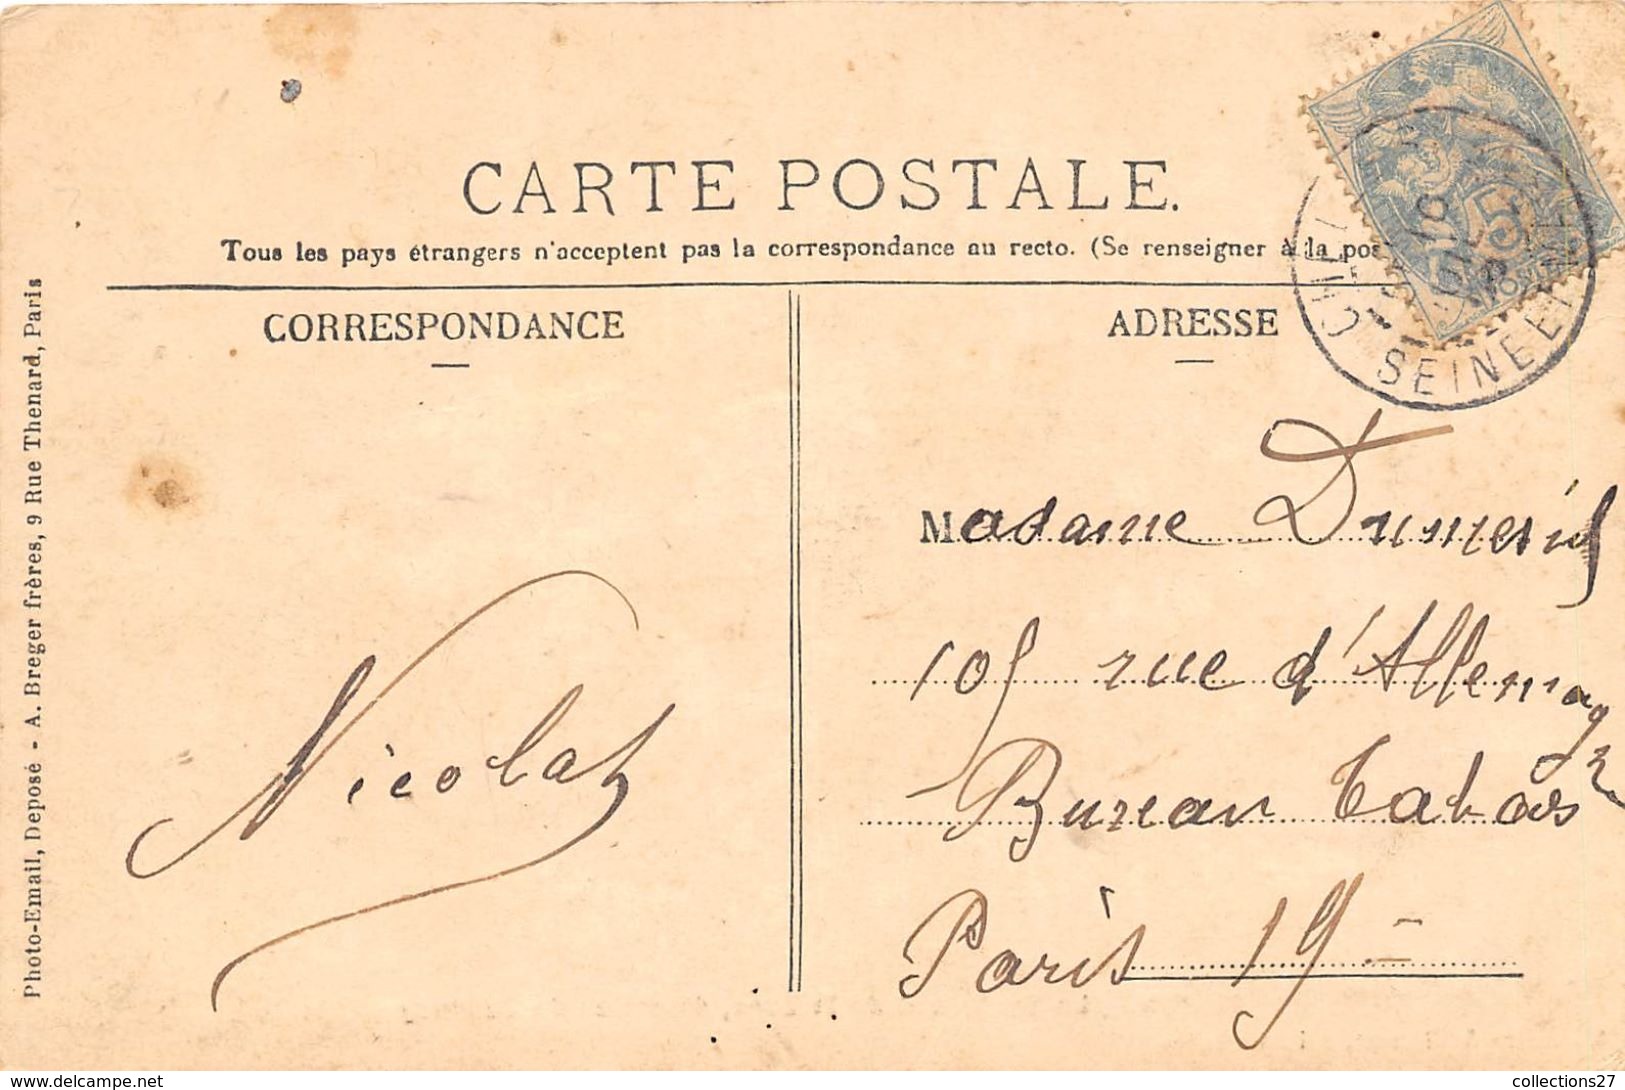 CARTE POSTALE.
Tous les pays étrangers n'acceptent pas la correspondance au recto. (Se renseigner à la pos
CORRESPONDANCE
ADRESSE
CHEL
SEINE ET
5
Madame Dumenil
105 rue d'Allemagne
Bureau Tabas
Paris 19
Nicolas
Photo-Email, Deposé - A. Breger frères, 9 Rue Thenard, Paris
collections27